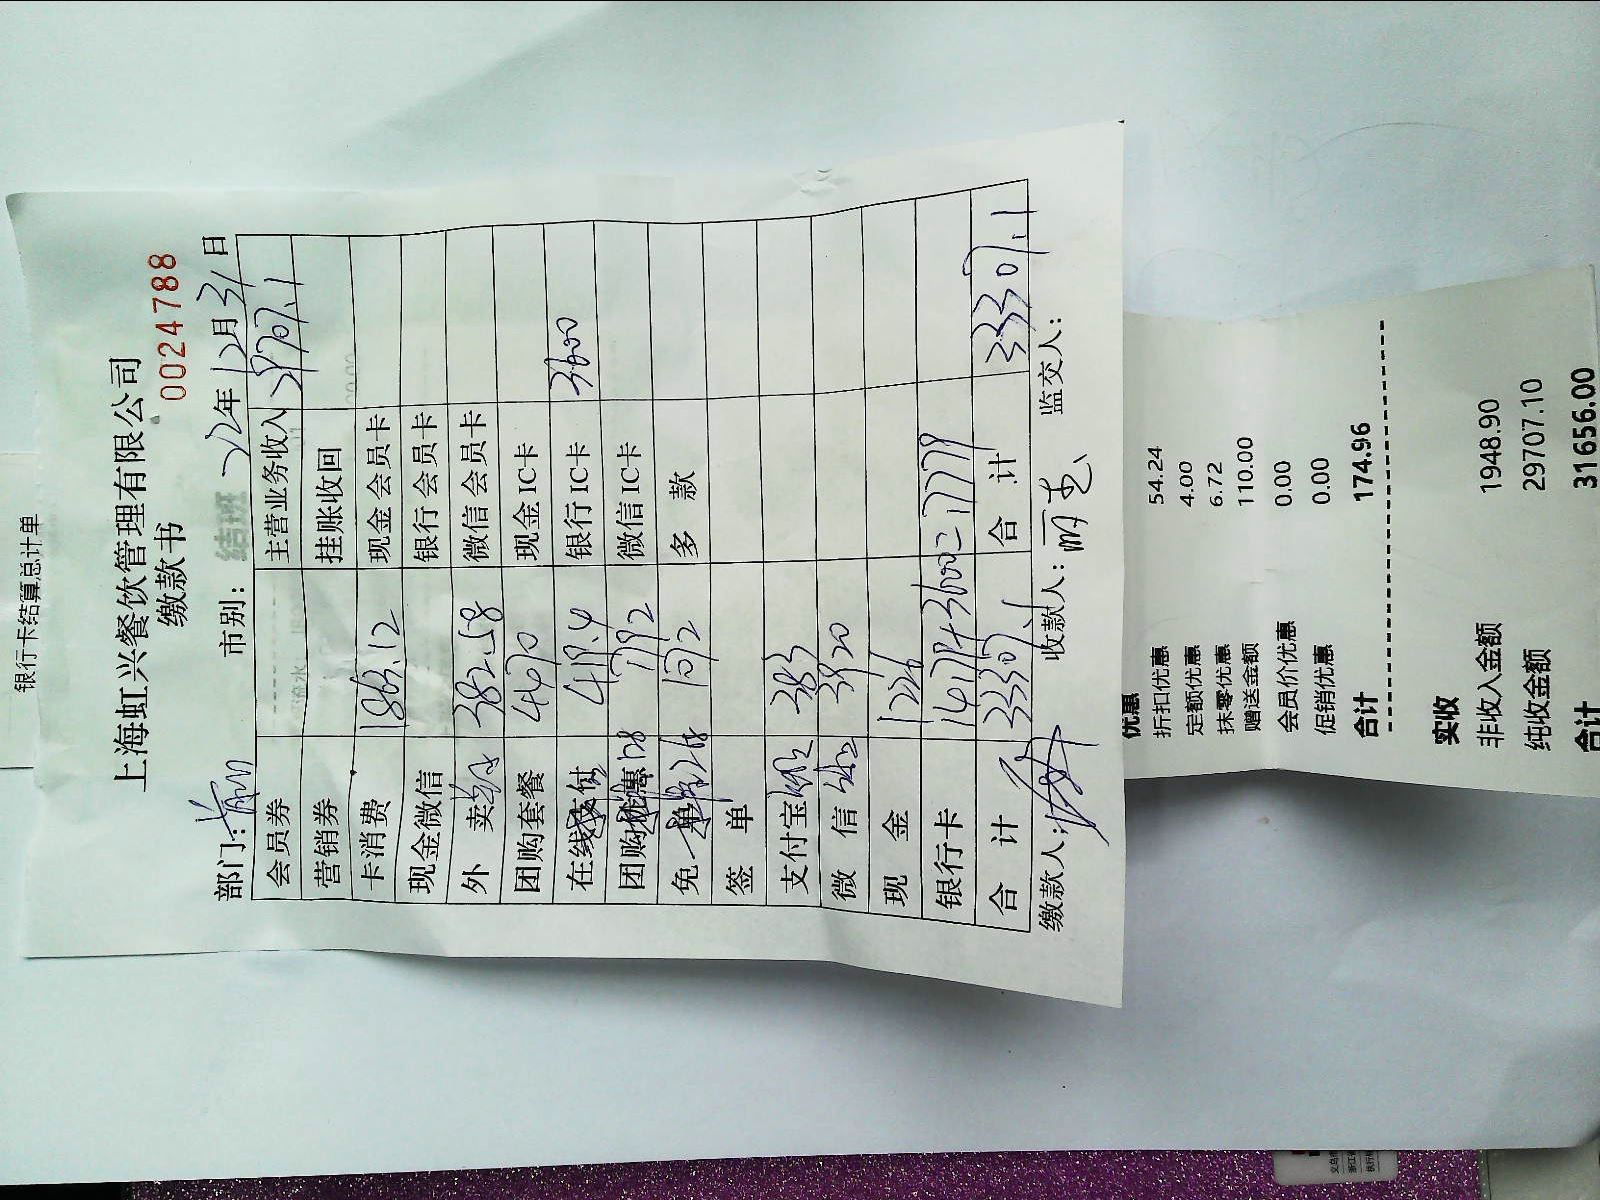 银行卡结算总计单
上海虹兴餐饮管理有限公司
缴款书
0024788
部门: 市别: 结班 22年12月31日
会员券 主营业务收入 29707.1
营销券 挂账收回
卡消费 1863.12 现金会员卡
现金微信 银行会员卡
外 卖 382.58 微信会员卡
团购套餐 4470 现金IC卡
在线支付 419.4 银行IC卡 3600
团购优惠 微信IC卡
免 单 多 款
签 单
支付宝 383
微 信 3920
现 金 1226
银行卡 14179+3600=17779
合 计 33307.1 合 计 33307.1
缴款人: 收款人: 监交人:
优惠
折扣优惠 54.24
定额优惠 4.00
抹零优惠 6.72
赠送金额 110.00
会员价优惠 0.00
促销优惠 0.00
合计 174.96
实收
非收入金额 1948.90
纯收金额 29707.10
合计 31656.00